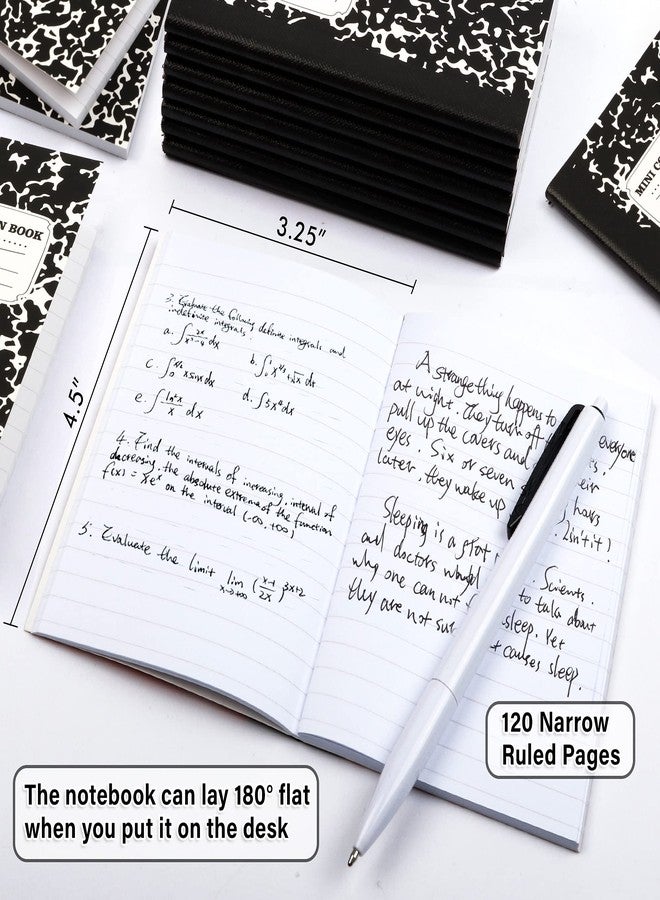 N BOOK
MINI CO
3.25"
4.5"
3. Evaluate the following definite integrals and
indefinite integrals.
a. ∫ 2x/(x²-4) dx
b. ∫₀¹ x⁴ᐟ³+√x dx
c. ∫ x sinx dx
d. ∫5x⁴dx
e. ∫ ln²x/x dx
4. Find the intervals of increasing, interval of
decreasing, the absolute extreme of the function
f(x) = xeˣ on the interval (-∞, +∞)
5. Evaluate the limit lim x→+∞ (x-1/2x)^3x+2
A strange thing happens to everyone
at night. They turn off
pull up the covers and
eyes. Six or seven
later, they wake up
Isn't it?
Sleeping is a
and doctors Scients.
why one can not to talk about
they are not sleep. Yet
causes sleep.
120 Narrow
Ruled Pages
The notebook can lay 180° flat
when you put it on the desk